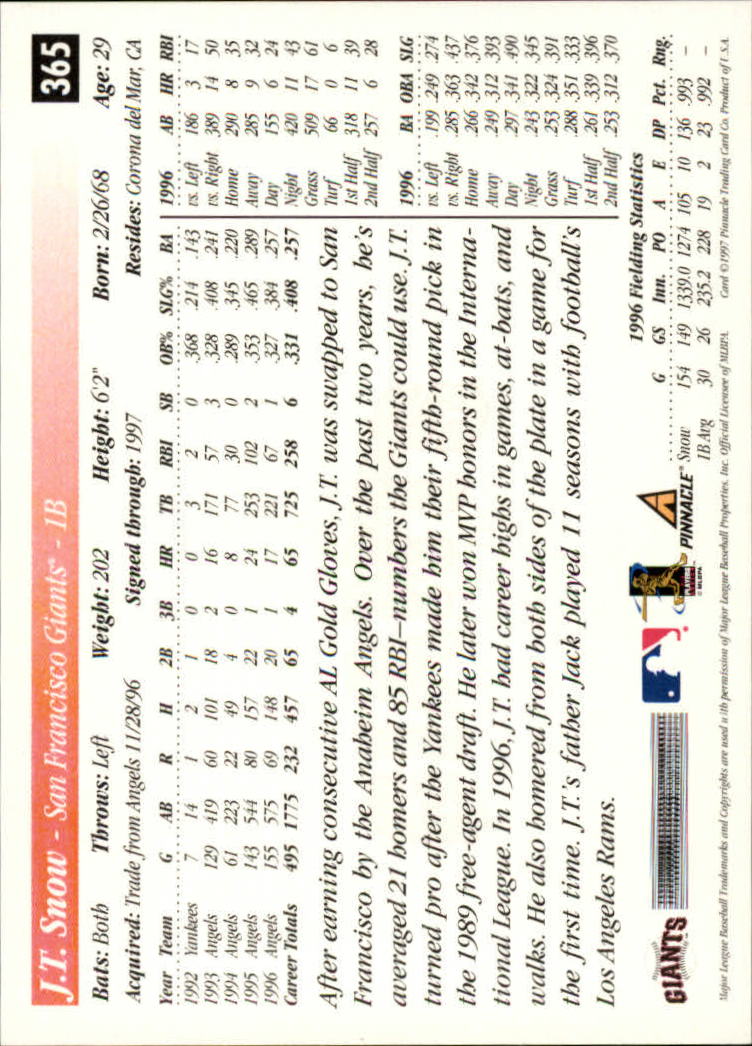 J.T. Snow - San Francisco Giants® - 1B 365
Bats: Both Throws: Left Weight: 202 Height: 6'2" Born: 2/26/68 Age: 29
Acquired: Trade from Angels 11/28/96 Signed through: 1997 Resides: Corona del Mar, CA
Year Team G AB R H 2B 3B HR TB RBI SB OB% SLG% BA
1992 Yankees 7 14 1 2 1 0 0 3 2 0 .368 .214 .143
1993 Angels 129 419 60 101 18 2 16 171 57 3 .328 .408 .241
1994 Angels 61 223 22 49 4 0 8 77 30 0 .289 .345 .220
1995 Angels 143 544 80 157 22 1 24 253 102 2 .353 .465 .289
1996 Angels 155 575 69 148 20 1 17 221 67 1 .327 .384 .257
Career Totals 495 1775 232 457 65 4 65 725 258 6 .331 .408 .257
After earning consecutive AL Gold Gloves, J.T. was swapped to San
Francisco by the Anaheim Angels. Over the past two years, he's
averaged 21 homers and 85 RBI–numbers the Giants could use. J.T.
turned pro after the Yankees made him their fifth-round pick in
the 1989 free-agent draft. He later won MVP honors in the Interna-
tional League. In 1996, J.T. had career highs in games, at-bats, and
walks. He also homered from both sides of the plate in a game for
the first time. J.T.'s father Jack played 11 seasons with football's
Los Angeles Rams.
1996 AB HR RBI
vs. Left 186 3 17
vs. Right 389 14 50
Home 290 8 35
Away 285 9 32
Day 155 6 24
Night 420 11 43
Grass 509 17 61
Turf 66 0 6
1st Half 318 11 39
2nd Half 257 6 28
1996 BA OBA SLG
vs. Left .199 .249 .274
vs. Right .285 .363 .437
Home .266 .342 .376
Away .249 .312 .393
Day .297 .341 .490
Night .243 .322 .345
Grass .253 .324 .391
Turf .288 .351 .333
1st Half .261 .339 .396
2nd Half .253 .312 .370
1996 Fielding Statistics
G GS Inn. PO A E DP Pct. Rng.
Snow 154 149 1339.0 1274 105 10 136 .993 –
1B Avg 30 26 235.2 228 19 2 23 .992 –
GIANTS
PLAYERS
© MLBPA
PINNACLE®
Major League Baseball Trademarks and Copyrights are used with permission of Major League Baseball Properties, Inc. Official Licensee of MLBPA. Card ©1997 Pinnacle Trading Card Co. Product of U.S.A.